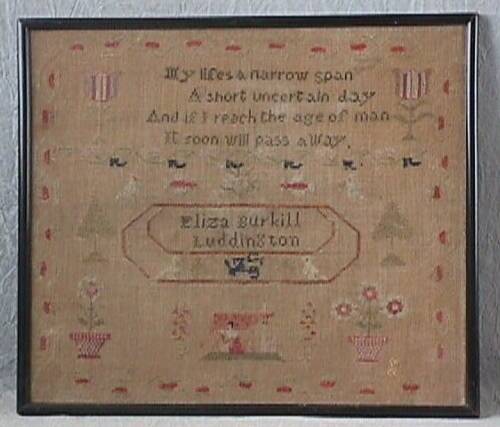 My lifes a narrow span
A short uncertain day
And if I reach the age of man
It soon will pass away.
Eliza Burkill
Luddington